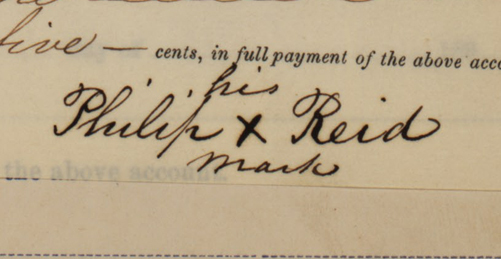 five — cents, in full payment of the above acco
his
Philip x Reid
mark
the above account.